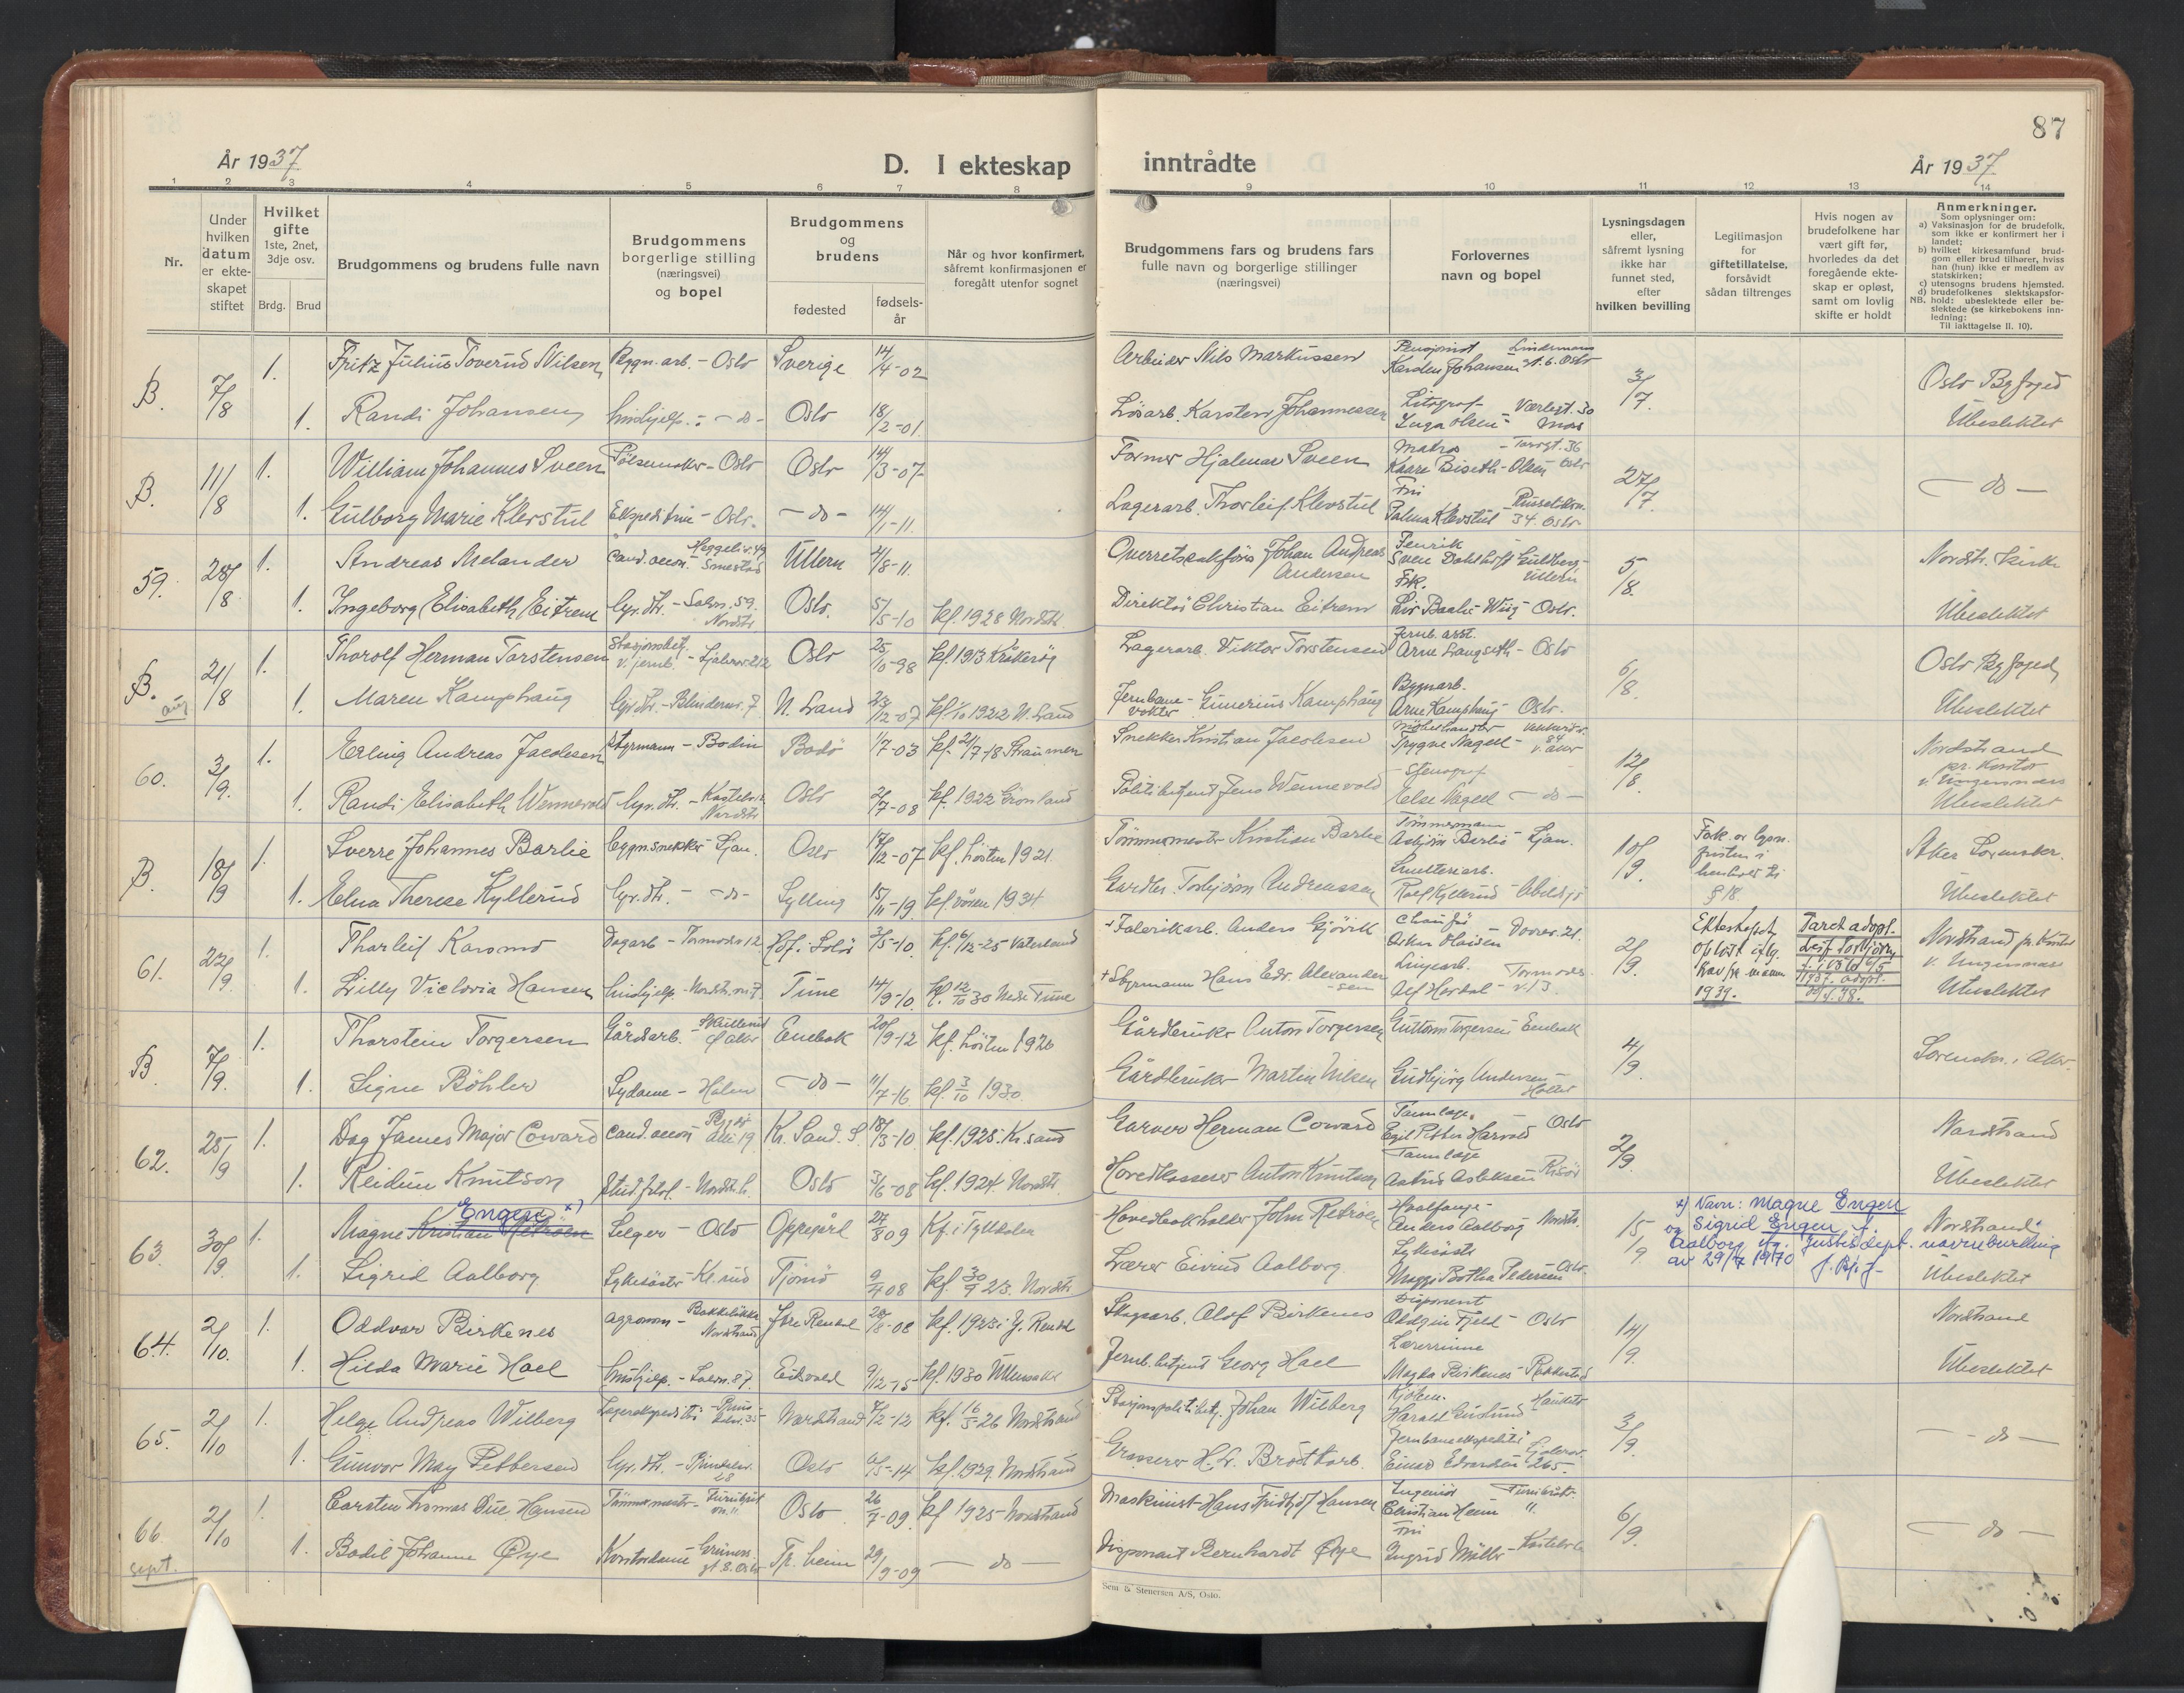 87
År 1937
D. I ekteskap inntrådte
År 1937
1 2 3 4 5 6 7 8 9 10 11 12 13 14
Nr.
Under hvilken datum er ekteskapet stiftet
Hvilket gifte 1ste, 2net, 3dje osv.
Brdg. Brud
Brudgommens og brudens fulle navn
Brudgommens borgerlige stilling (næringsvei) og bopel
Brudgommens og brudens
fødested
fødselsår
Når og hvor konfirmert, såfremt konfirmasjonen er foregått utenfor sognet
Brudgommens fars og brudens fars fulle navn og borgerlige stillinger (næringsvei)
Forlovernes navn og bopel
Lysningsdagen eller, såfremt lysning ikke har funnet sted, efter hvilken bevilling
Legitimasjon for giftetillatelse, forsåvidt sådan tiltrenges
Hvis nogen av brudefolkene har vært gift før, hvorledes da det foregående ekteskap er opløst, samt om lovlig skifte er holdt
Anmerkninger.
Som oplysninger om:
a) Vaksinasjon for de brudefolk, som ikke er konfirmert her i landet;
b) hvilket kirkesamfund brudgom eller brud tilhører, hviss han (hun) ikke er medlem av statskirken;
c) utensogns brudens hjemsted.
d) brudefolkenes slektskapsforhold: ubeslektede eller beslektede (se kirkebokens innledning:
NB. Til iakttagelse II. 10).
B. 7/8 1. Fritz Julius Toverud Nilsen Bygn.arb. - Oslo Sverige 14/4-02 Arbeider Nils Markussen Pensjonist Karsten Johansen Lindemans gt. 6. Oslo 3/7. Oslo Byfoged
1. Randi Johansen Hushjelp. - do - Oslo 18/2-01 Løsarb. Karsten Johannessen Litograf Inga Olsen - Værlegt. 30 Moss Ubeslektet
B. 11/8 1. William Johannes Sveen Pølsemaker - Oslo Oslo 14/3-07 Former Hjalmar Sveen Matros Kaare Biseth-Olsen - Torvgt. 36 Oslo 27/7. - do -
1. Gulborg Marie Klevstul Ekspeditrise - Oslo. - do - 14/1-11. Lagerarb. Thorleif Klevstul Fru Palma Klevstul - 34. Oslo
59. 28/8 1. Andreas Melander Cand. oecon. Heggeliv. 49 Smestad Ullern 4/8-11. Overretssakfører Johan Andreas Andersen Fenrik Sven Dahlhoff Guldberg - Ullern 5/8. Nordstr. kirke
1. Ingeborg Elisabeth Eitrem Hpr. dtr. - Solvn. 59. Nordstr Oslo. 5/5-10 kf. 1928 Nordstr. Direktør Christian Eitrem Frk. Liv Baalie Wiig - Oslo. Ubeslektet
B. 21/8 1. Thorolf Herman Torstensen Stasjonsbetj. v. jernb. - Ljabrov. 212 Oslo 25/10-98 kf. 1913 Kråkerøy Lagerarb. Viktor Torstensen Jernb. asst. Arne Langseth - Oslo 6/8. Oslo Byfoged
aug
1. Maren Kamphaug Hpr. dtr. - Blindernv. 7 N. Land 23/12-07 kf. 1/10 1922 N. Land Jernbanevokter Gunerius Kamphaug Bygnarb. Arne Kamphaug - Oslo. Ubeslektet
60. 3/9. 1. Erling Andreas Jacobsen Styrmann - Bodin Bodø 1/7-03 kf. 21/7-18 Straumen Snekker Kristian Jacobsen Møbelhandler Trygve Nagell - v. Aker 12/8. Nordstrand pr. Kontor v. Ungensness
1. Randi Elisabeth Wennevold - Hpr. dtr. - Kastelv. Nordstr Oslo 2/7-08 kf. 1922 Grønland Politibetjent Jens Wennevold - Stenograf Else Nagell - do - Ubeslektet
B. 18/9 1. Sverre Johannes Barlie Bygn.snekker - Ljan. Oslo 17/2-07 kf. høsten 1921. Tømmermester Kristian Barlie Tømmermann Asbjørn Barlie - Ljan. 10/9. Fak. av lysn. fristen i henhold til § 18. Aker Sorenskr.
1. Elna Therese Kyllerud Hpr. dtr. - do - Sylling 15/11-19 kf. våren 1934 Gårdbr. Torbjørn Andreassen Emeltearb. Rolf Kyllerud - Abildsjø Ubeslektet
61. 22/9. 1. Tharleif Karsmo Dagarb - Tormodsv. 12. Hof i Solør 3/5-10. kf. 6/12-25 Vaterland + Fabrikarb. Anders Gjørvik Chauffør Oskar Hansen - Dovrev. 21. 2/9. Ekteskapet opløst iflg. bev. fra mann 1939. Nordstrand pr. Kontor v. Ungensness
1. Lilly Victoria Hansen Hushjelp - Nordstr.vn. 7. Tune 14/9-10. kf. 12/10 30 Nedre Tune + Styrmann Hans Edv. Alexandersen Linjearb. Alf Hordal - Tormods v. 13. Ubeslektet
B 7/9. 1. Thorstein Torgersen Gårdsarb. - Skullerud Ø. Aker Enebak 20/9-12 kf. høsten 1926 Gårdbruker Anton Torgersen Guttorm Torgersen Enebak 4/9. Sorenskr. i Aker.
1. Signe Bøhler Sydame - Holm - do - 11/7-16. kf. 3/10 1930. Gårdbruker Martin Nilsen Gudbjørg Andersen -
62. 25/9 1. Dag James Major Coward Cand. oecon alle 19 Kr. Sand. S. 18/3-10 kf. 1925. Kr. sand Garver Herman Coward Tannlæge Egil Petter Harvold Oslo 2/9. Nordstrand
1. Reidun Knutson Stud. filol. - Nordstr. h. Oslo 3/6-08 kf. 1924 Nordstr. Hovedkasserer Anton Knutson Tannlæge Astrid Aslaksen Risør Ubeslektet
63. 30/9. 1. Magne Kristian Engen x) Selger - Oslo Oppegård 27/8 09 Kf. i Tylldalen Hovedbokholder John Retroen Hvalfanger Anders Aalborg Nordstr. 15/9. x) Navn: Magne Engen og Sigrid Engen f. Aalborg iflg. Justisdept. navnebevilling av 29/7 1970 Nordstrand
1. Sigrid Aalborg Sykesøster - Kr.sund Tjømø 9/4 08 kf. 30/9 23. Nordstr. Lærer Eivind Aalborg Sykesøster Muggi Botha Pedersen - Oslo. Ubeslektet
64. 2/10. 1. Oddvar Birkenes Agronom - Bakkeløkka Nordstrand Ytre Rendal 28/8-08 kf. 1923 i Y. Rendal Skogsarb. Olof Birkenes Disponent Oldgin Fjeld - Oslo 14/9. Nordstrand
1. Hilda Marie Hoel Hushjelp. - Solvn. 87. Eidsvold 9/12-15 kf. 1930 Ullensaker Jernb. betjent Georg Hoel Lærerinne Magda Birkenes - Rakkestad Ubeslektet
65. 2/10 1. Helge Andreas Wilberg Lagerekspeditør - Nordstrand 7/2-12 kf. 16/5 26 Nordstrand Stasjonspolitibetj. Johan Wilberg Kjøbm. Harald Gusland Hauketo 3/9. - do -
1. Gunvor May Pettersen Hpr. dtr. - 28 Oslo 6/5-14 kf. 1929. Nordstrand Grosserer H. Fr. Brodtkorb. Jernbaneekspeditør Einar Edvardsen Ljabrov. 265.
66. 2/10 1. Carsten Thomas Due Hansen Tømmermester - Oslo 26/7-09. kf. 1925 Nordstrand Maskinist Hans Fridtjof Hansen Ingeniør Christian Heim 6/9. - do -
sept.
1. Bodil Johanne Øye Kontordame - gt. 8. Oslo Tr. heim 29/9-09 - do - Disponent Bernhardt Øye Fru Ingrid Møller - Kastelv.
Sem & Stenersen A/S, Oslo.